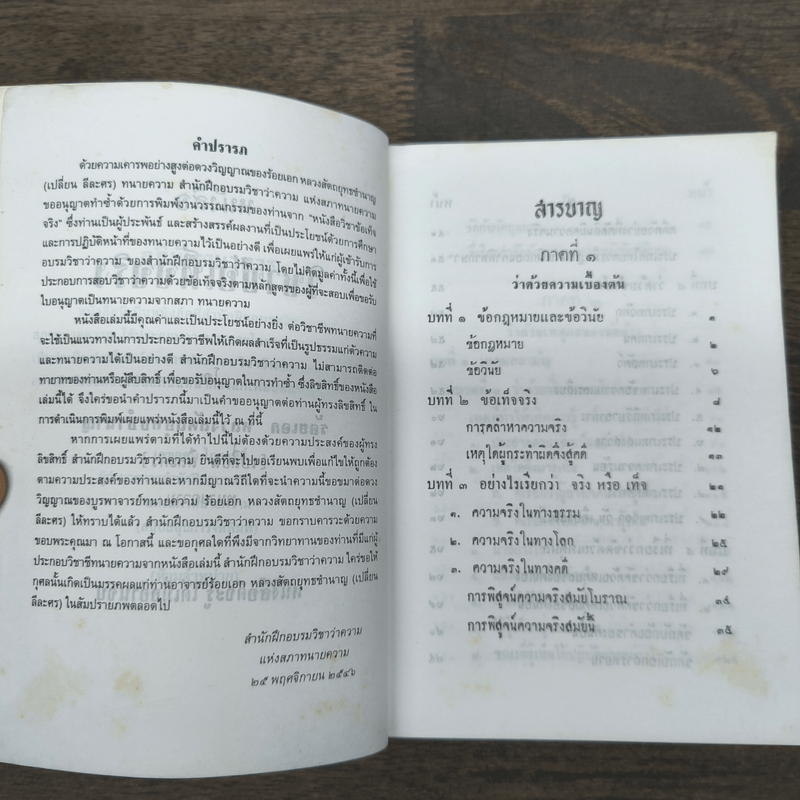 คำปรารภ
ด้วยความเคารพอย่างสูงต่อดวงวิญญาณของร้อยเอก หลวงสัตถยุทธชำนาญ
(เปลี่ยน ลีละศร) ทนายความ สำนักฝึกอบรมวิชาว่าความ แห่งสภาทนายความ
ขออนุญาตทำซ้ำด้วยการพิมพ์งานวรรณกรรมของท่านจาก "หนังสือวิชาข้อเท็จ
จริง" ซึ่งท่านเป็นผู้ประพันธ์ และสร้างสรรค์ผลงานที่เป็นประโยชน์ด้วยการศึกษา
และการปฏิบัติหน้าที่ของทนายความไว้เป็นอย่างดี เพื่อเผยแพร่ให้แก่ผู้เข้ารับการ
อบรมวิชาว่าความ ของสำนักฝึกอบรมวิชาว่าความ โดยไม่คิดมูลค่าทั้งนี้เพื่อใช้
ประกอบการสอบวิชาว่าความด้วยข้อเท็จจริงตามหลักสูตรของผู้ที่จะสอบเพื่อขอรับ
ใบอนุญาตเป็นทนายความจากสภา ทนายความ
หนังสือเล่มนี้มีคุณค่าและเป็นประโยชน์อย่างยิ่ง ต่อวิชาชีพทนายความที่
จะใช้เป็นแนวทางในการประกอบวิชาชีพให้เกิดผลสำเร็จที่เป็นรูปธรรมแก่ตัวความ
และทนายความได้เป็นอย่างดี สำนักฝึกอบรมวิชาว่าความ ไม่สามารถติดต่อ
ทายาทของท่านหรือผู้สืบสิทธิ์ เพื่อขอรับอนุญาตในการทำซ้ำ ซึ่งลิขสิทธิ์ของหนังสือ
เล่มนี้ได้ จึงใคร่ขอนำคำปรารภนี้มาเป็นคำขออนุญาตต่อท่านผู้ทรงลิขสิทธิ์ ใน
การดำเนินการพิมพ์เผยแพร่หนังสือเล่มนี้ไว้ ณ ที่นี้
หากการเผยแพร่ตามที่ได้ทำไปนี้ไม่ต้องด้วยความประสงค์ของผู้ทรง
ลิขสิทธิ์ สำนักฝึกอบรมวิชาว่าความ ยินดีที่จะไปขอเรียนพบเพื่อแก้ไขให้ถูกต้อง
ตามความประสงค์ของท่านและหากมีญาณวิถีใดที่จะนำความนี้ขอขมาต่อดวง
วิญญาณของบูรพาจารย์ทนายความ ร้อยเอก หลวงสัตถยุทธชำนาญ (เปลี่ยน
ลีละศร) ให้ทราบได้แล้ว สำนักฝึกอบรมวิชาว่าความ ขอกราบคารวะด้วยความ
ขอบพระคุณมา ณ โอกาสนี้ และขอกุศลใดที่พึงมีจากวิทยาทานของท่านที่มีแก่ผู้
ประกอบวิชาชีพทนายความจากหนังสือเล่มนี้ สำนักฝึกอบรมวิชาว่าความ ใคร่ขอให้
กุศลนั้นเกิดเป็นมรรคผลแก่ท่านอาจารย์ร้อยเอก หลวงสัตถยุทธชำนาญ (เปลี่ยน
ลีละศร) ในสัมปรายภพตลอดไป
สำนักฝึกอบรมวิชาว่าความ
แห่งสภาทนายความ
๒๕ พฤศจิกายน ๒๕๔๖
สารบาญ
ภาคที่ ๑
ว่าด้วยความเบื้องต้น
บทที่ ๑ ข้อกฎหมายและข้อวินัย ๑
ข้อกฎหมาย ๒
ข้อวินัย ๖
บทที่ ๒ ข้อเท็จจริง ๘
การุคลำหาความจริง ๑๐
เหตุใดผู้กระทำผิดจึงสู้คดี ๑๓
บทที่ ๓ อย่างไรเรียกว่า จริง หรือ เท็จ ๒๑
๑. ความจริงในทางธรรม ๒๒
๒. ความจริงในทางโลก ๒๕
๓. ความจริงในทางคดี ๒๙
การพิสูจน์ความจริงสมัยโบราณ ๓๔
การพิสูจน์ความจริงสมัยนี้ ๓๕